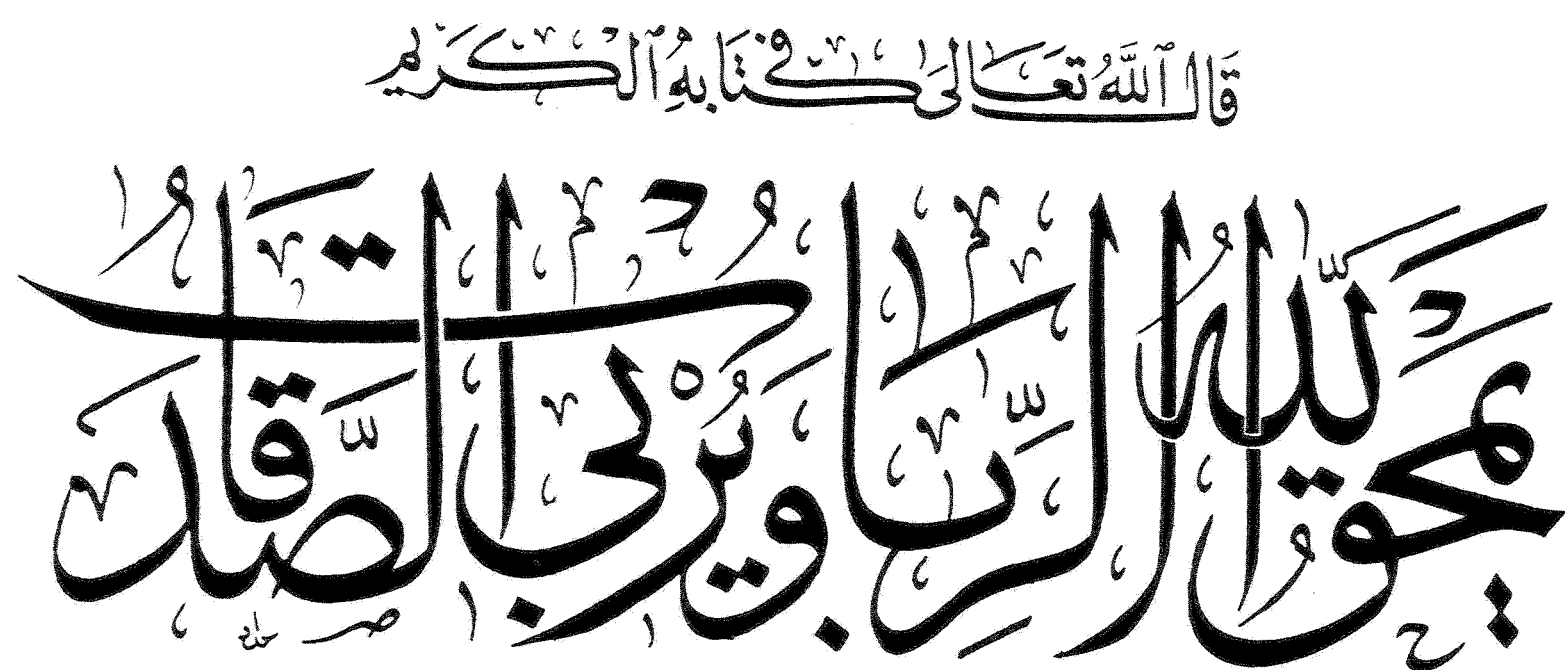 قَالَ ٱللَّهُ تَعَالَىٰ فِي كِتَابِهِ ٱلْكَرِيمِ
يَمْحَقُ اللَّهُ الرِّبَا وَيُرْبِي الصَّدَقَاتِ